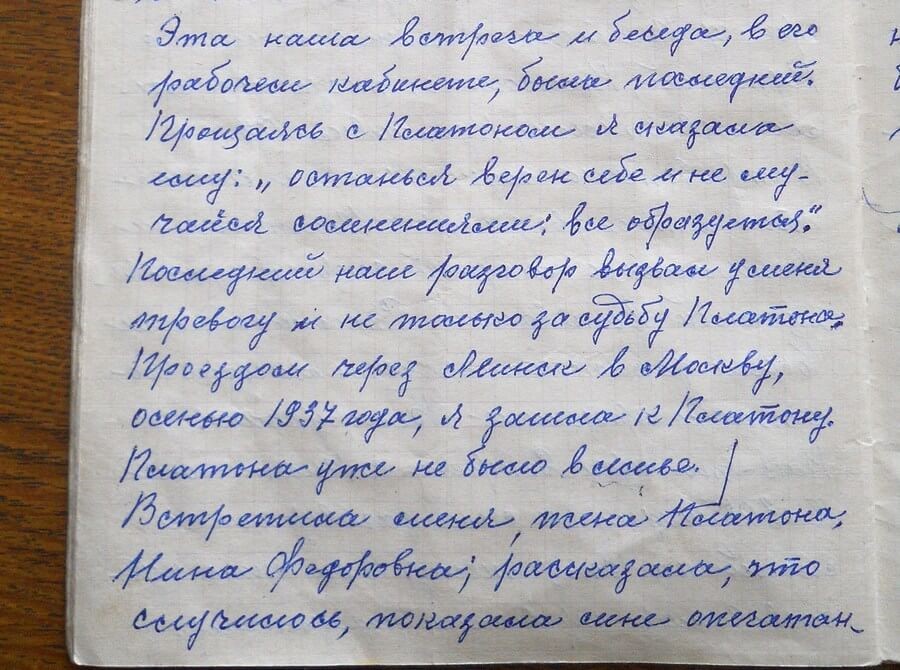 Эта наша встреча и беседа, в его
рабочем кабинете, была последней.
Прощаясь с Платоном я сказала
ему: „останься верен себе и не му-
чайся сомнениями: все образуется."
Последний наш разговор вызвал у меня
тревогу и не только за судьбу Платона.
Проездом через Минск в Москву,
осенью 1937 года, я зашла к Платону.
Платона уже не было в живье.
Встретила меня жена Платона,
Нина Федоровна; рассказала, что
случилось, показала мне опечатан-